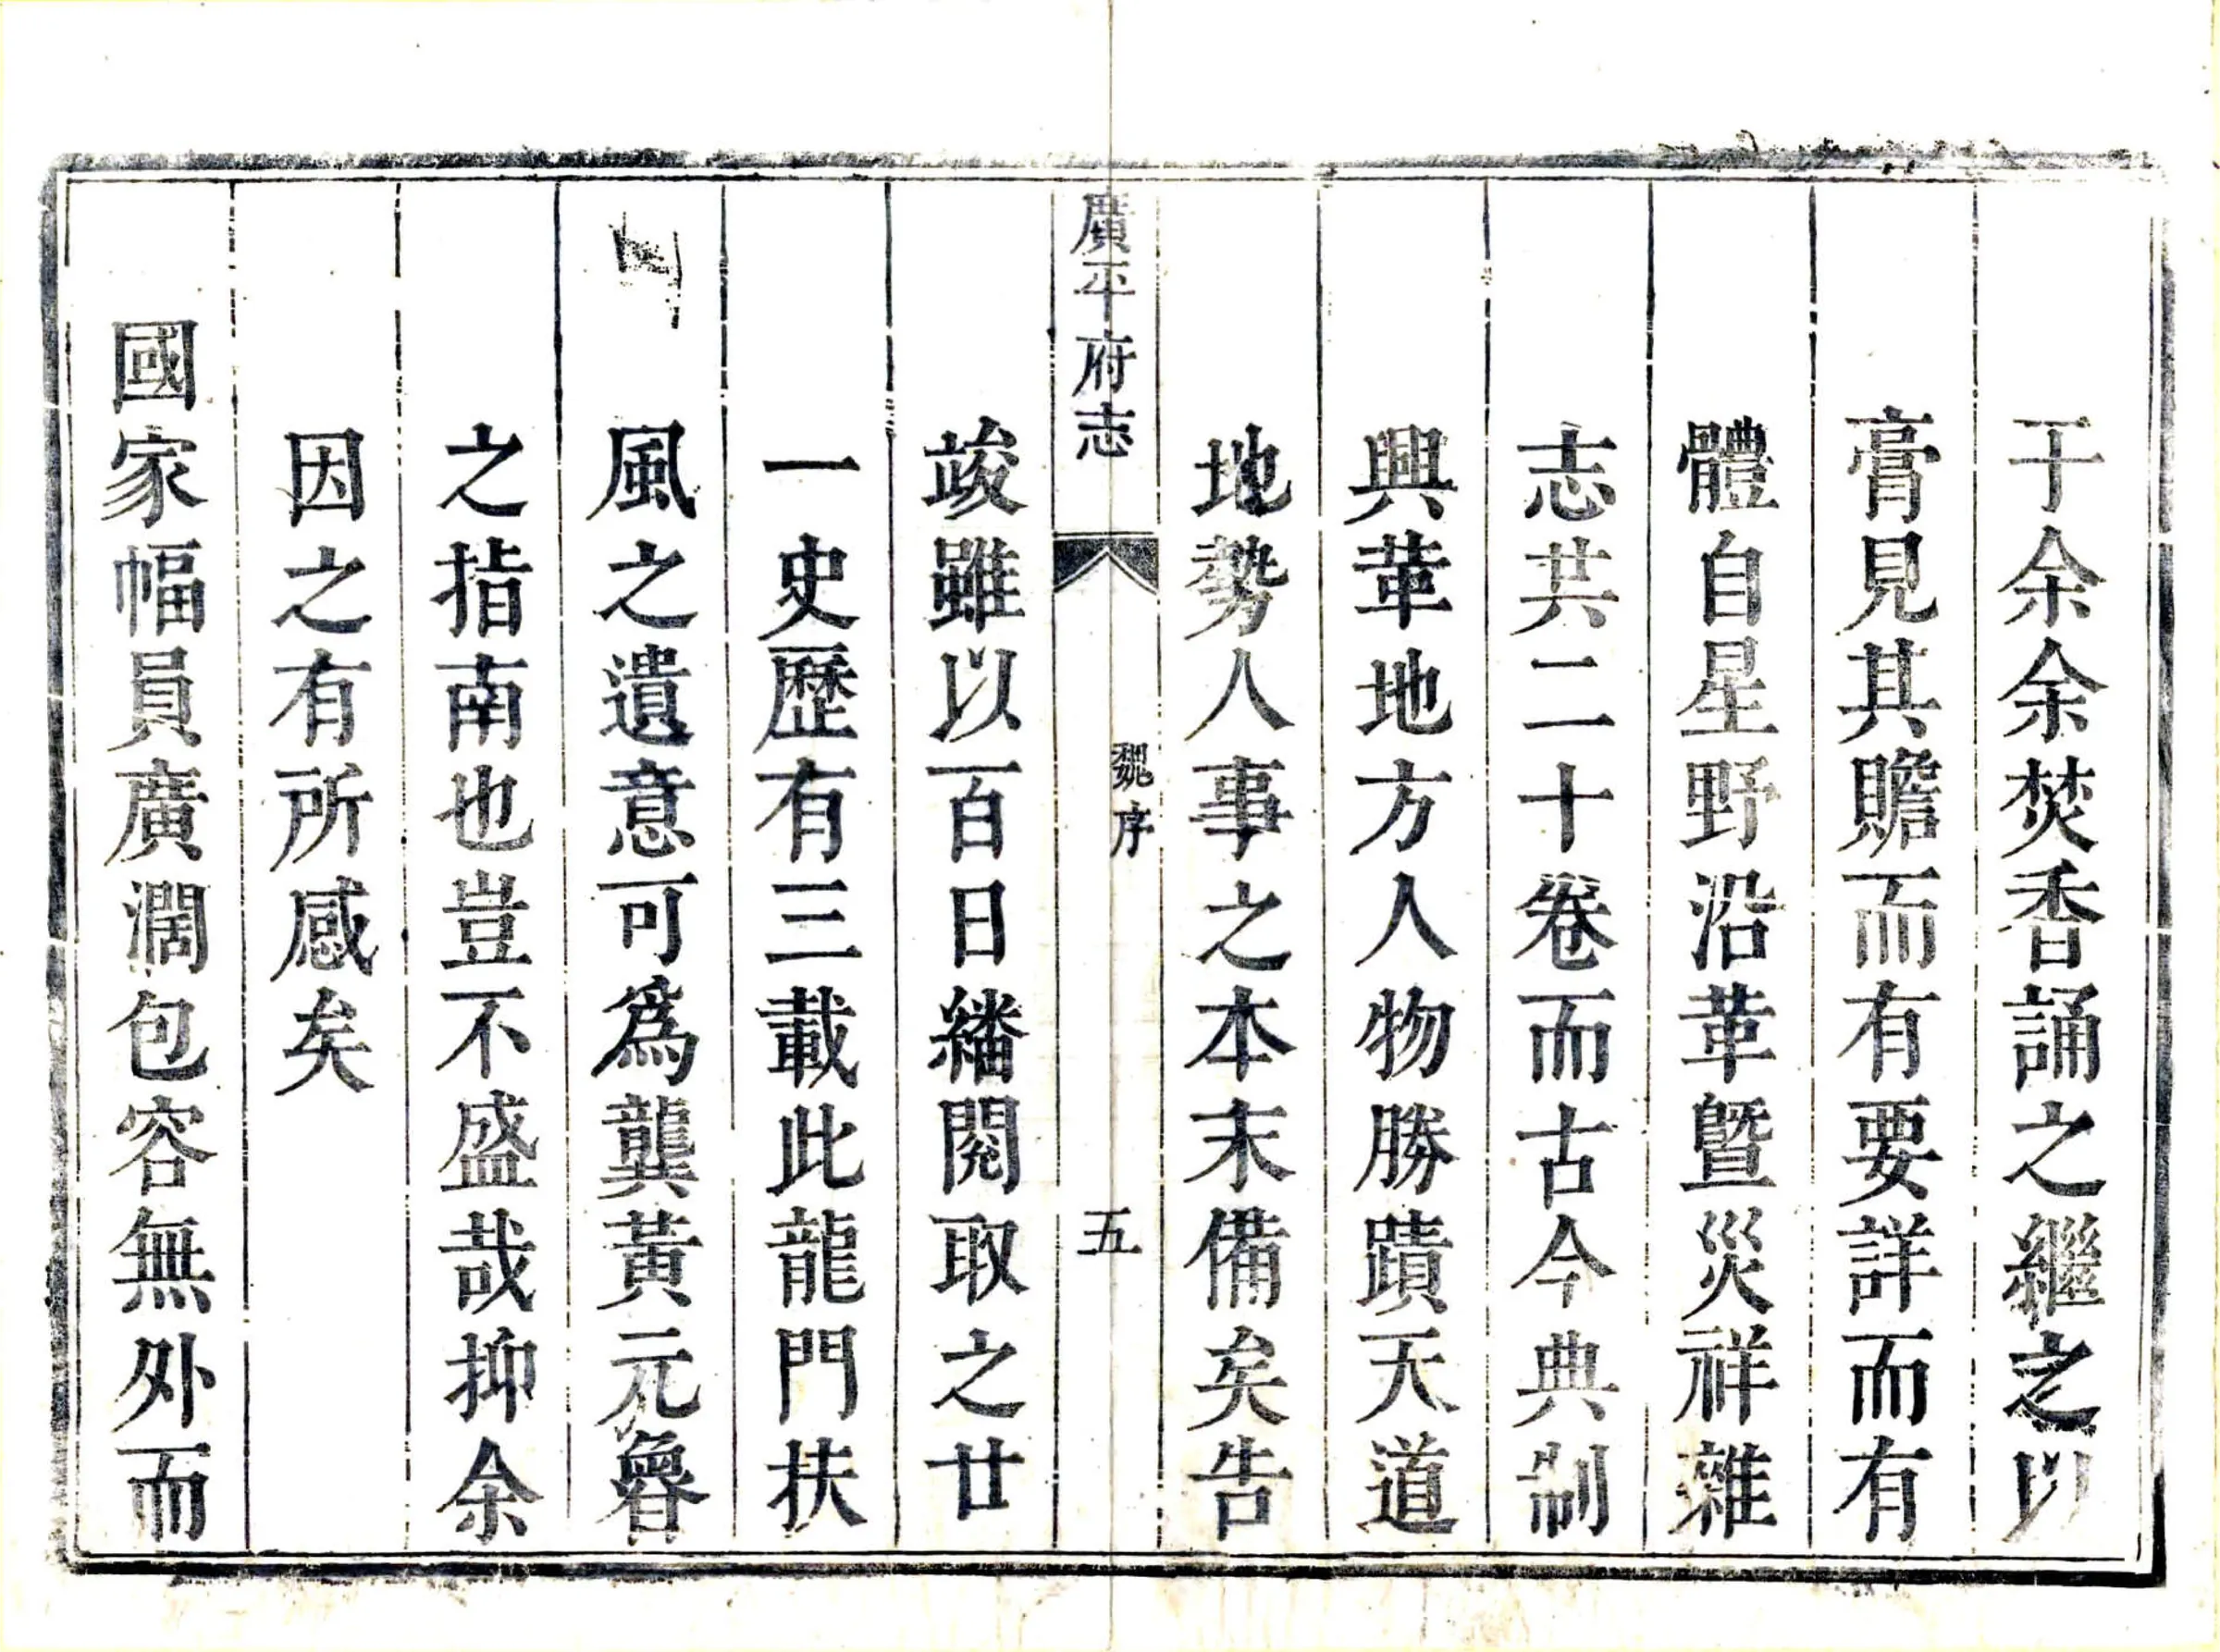 于余余焚香誦之繼之以
膏見其贍而有要詳而有
體自星野沿革曁災祥雜
志共二十卷而古今典制
興革地方人物勝蹟天道
地勢人事之本末備矣告
廣平府志
魏序
五
竣雖以百日繙閱取之廿
一史歷有三載此龍門扶
風之遺意可爲龔黃元
之指南也豈不盛哉抑余
因之有所感矣
國家幅員廣濶包容無外而